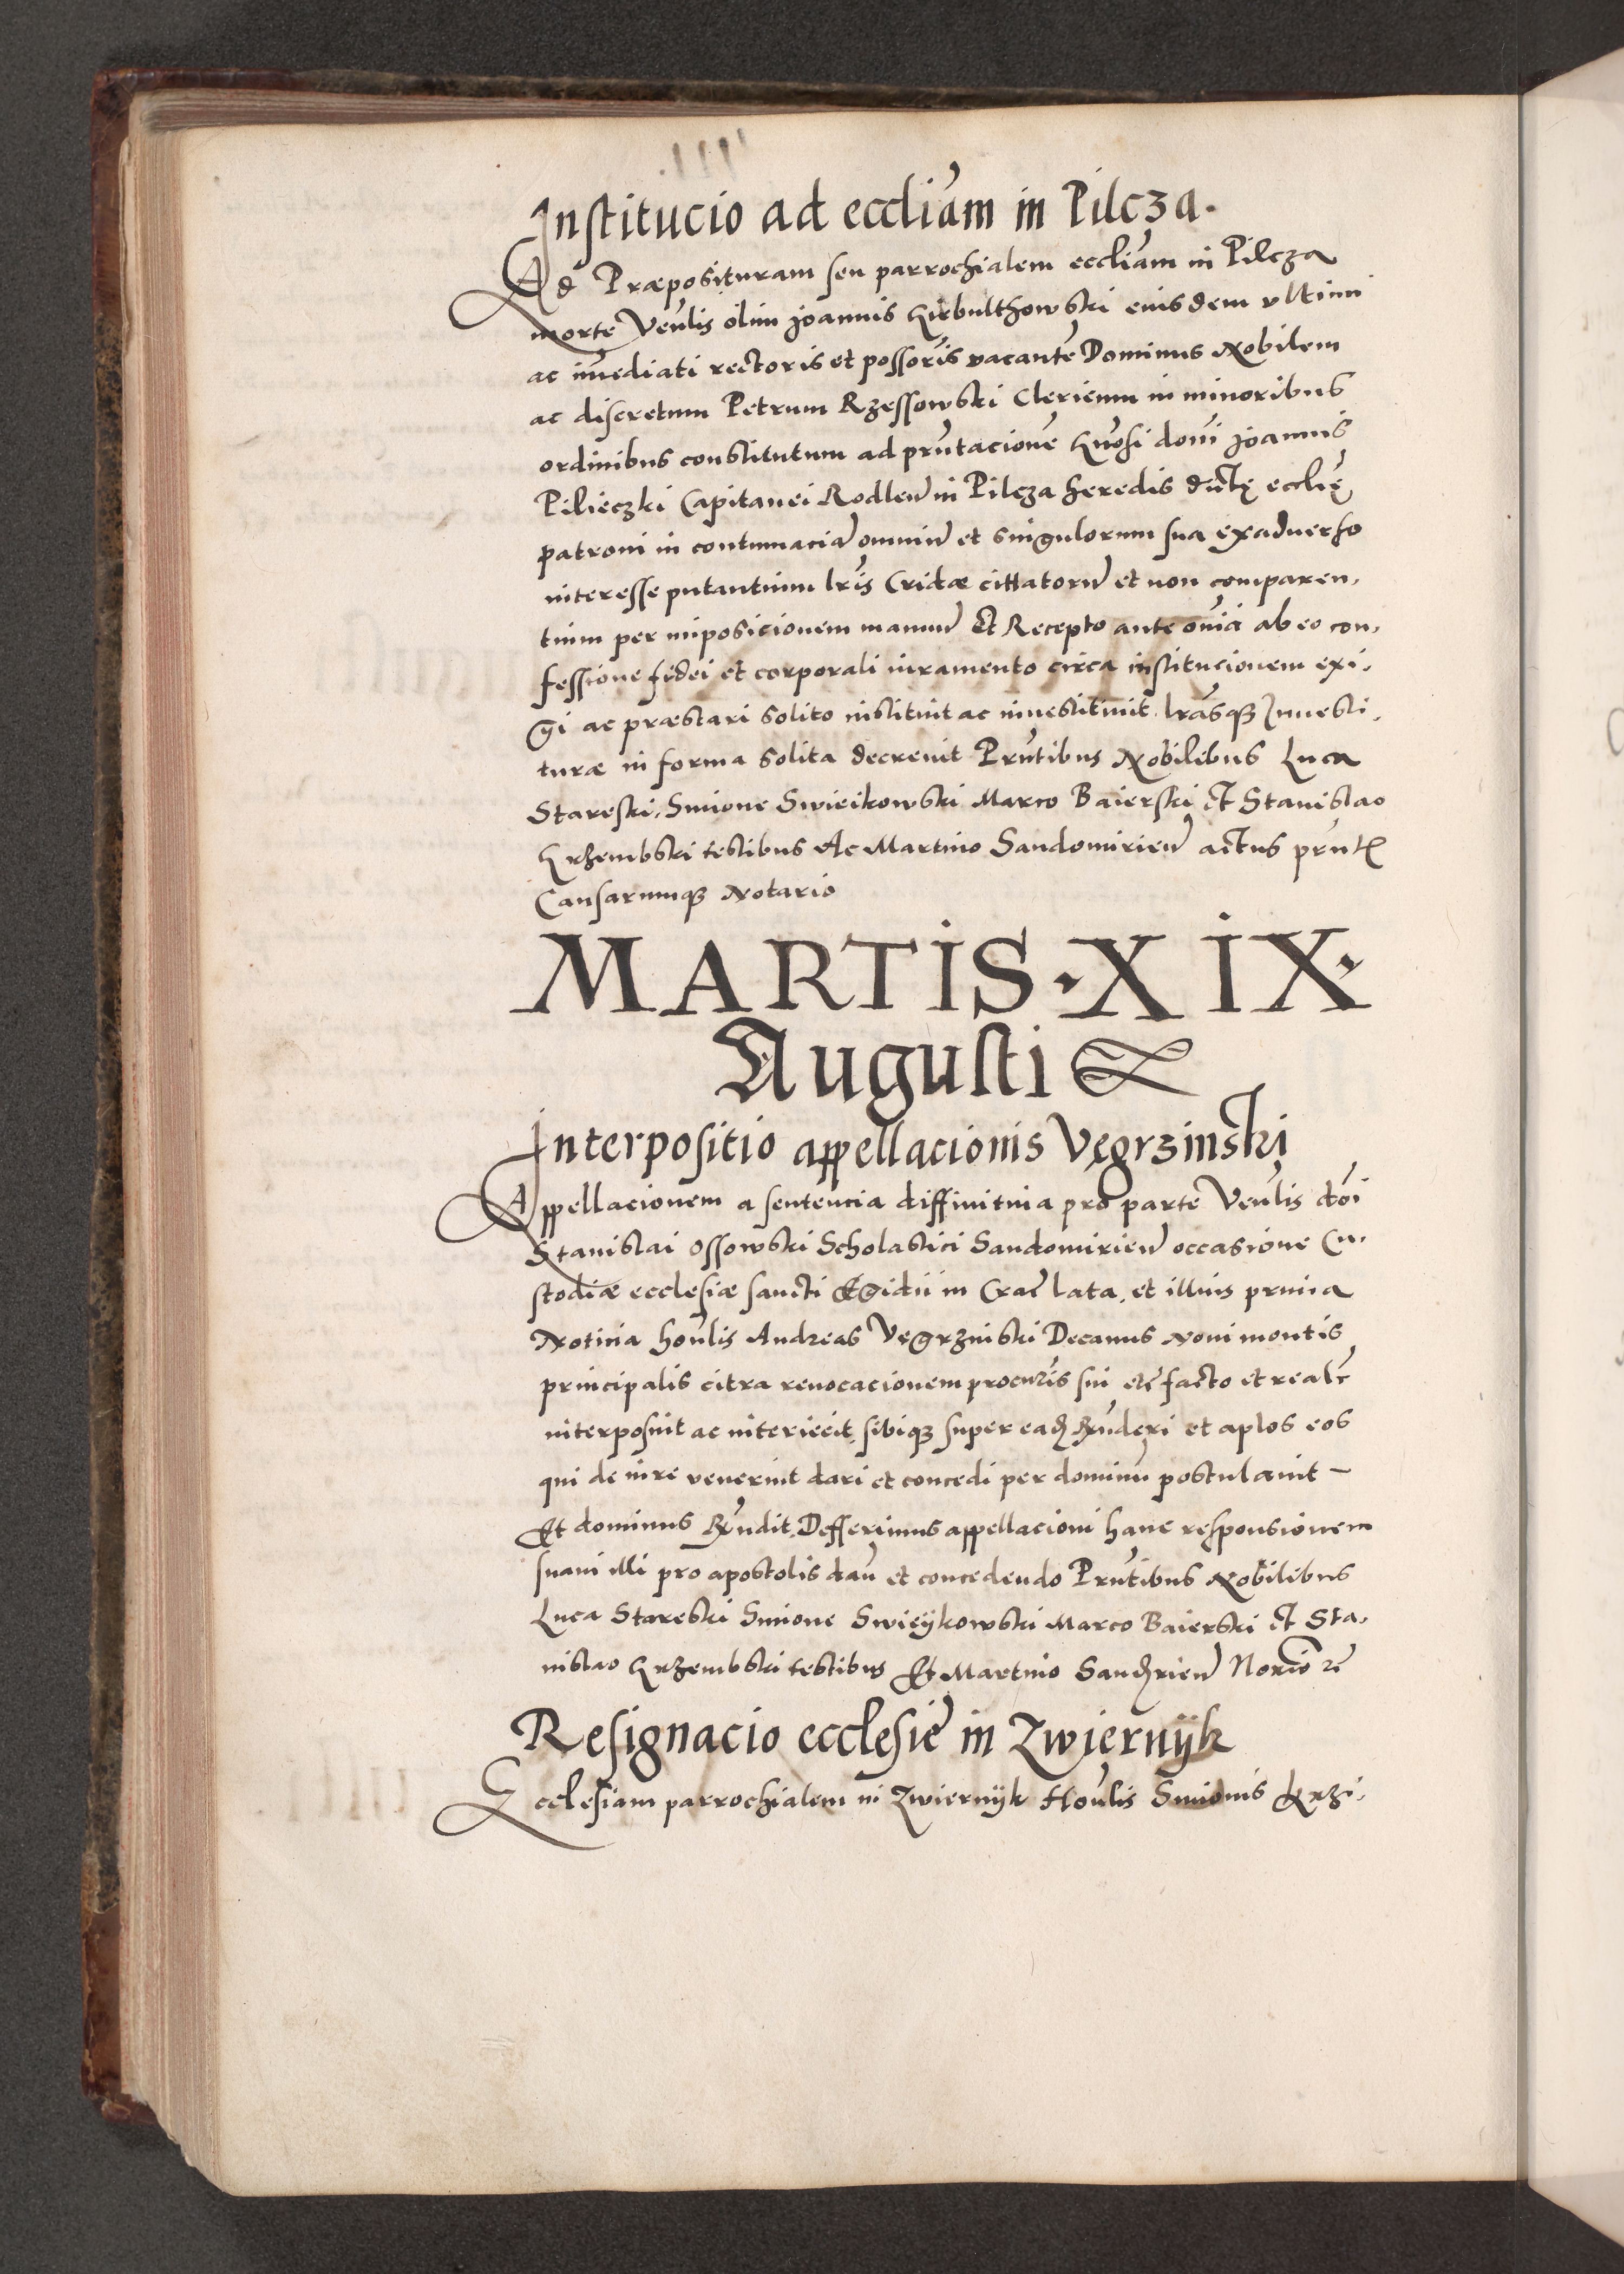 Institucio ad eccliam in Pilcza.
Ad Præposituram seu parrochialem eccliam in Pilcza
morte Venlis olim Joannis Kirbulthowski eiusdem ultimi
ac imediati rectoris et possoris vacante Dominus Nobilem
ac discretum Petrum Rzessowski Clericum in minoribus
ordinibus constitutum ad prntacione Gnosi domi Joannis
Pilieczki Capitanei Rodlen in Pilcza heredis dictę ecclię
patroni in contumacia omniu et singulorum sua exadverso
interesse putantium lris Cridæ cittatoru et non comparen,
tium per imposicionem manuu Et Recepto ante omia ab eo con,
fessione fidei et corporali iuramento circa institucionem exi,
gi ac præstari solito instituit ac investituit. lrasqȝ Investi,
turæ in forma solita decrevit Prntibus Nobilibus Luca
Stareski, Simone Swieikowski Marco Baierski Et Stanislao
Krzembski testibus Ac Martino Sandomirien actus prntis
Causarumqȝ Notario
MARTIS · XIX ·
Augusti
Interpositio appellacionis Vęgrzinski
Appellacionem a sentencia diffinitiva pro parte Venlis doi
Stanislai Ossowski Scholastici Sandomirien occasione Cu,
stodiæ ecclesiæ sancti Egidii in Crac lata, et illius primia
Noticia honlis Andreas Vegrzinski Decanus Novi montis
principalis citra revocacionem procuris sui etc facto et realr
interposuit ac interiecit, sibiqȝ super ead Rnderi et aplos eos
qui de iure venerint dari et concedi per dominu postulavit —
Et dominus Rndit, Defferimus appellacioni hanc responsionem
suam illi pro apostolis dan et concedendo Prntibus Nobilibus
Luca Stareski Simone Swieÿkowski Marco Baierski Et Sta,
nislao Krzembski testibus Et Martino Sandrien Norio rc
Resignacio ecclesie in Zwiernÿk
Ecclesiam parrochialem in Zwiernÿk Honlis Simonis Krzi,